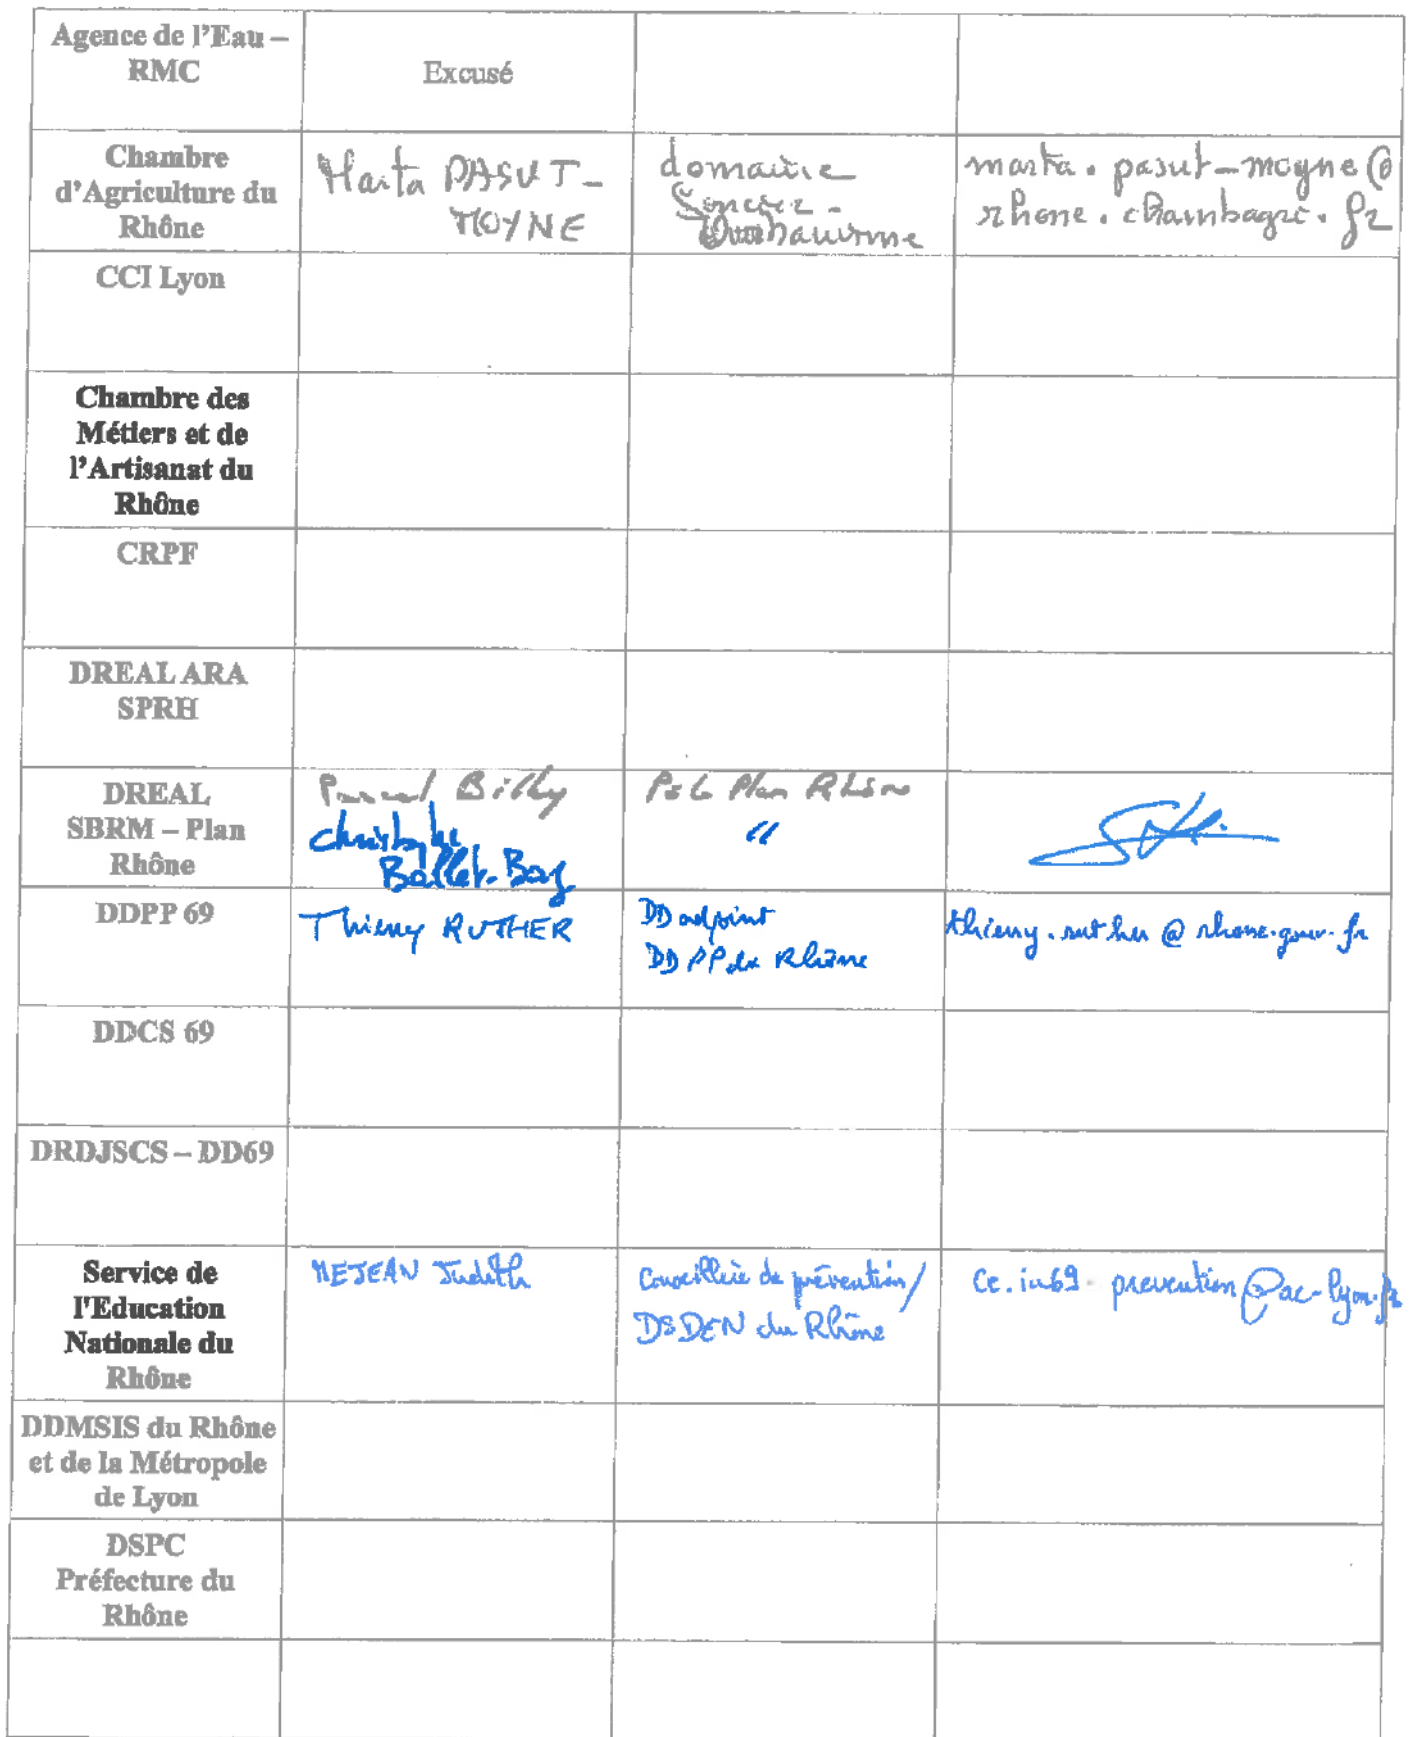 Agence de l'Eau –
RMC
Excusé
Chambre
d'Agriculture du
Rhône
Marta PASUT-
MOYNE
domaine
foncier -
Urbanisme
marta.pasut-moyne@
rhone.chambagri.fr
CCI Lyon
Chambre des
Métiers et de
l'Artisanat du
Rhône
CRPF
DREAL ARA
SPRH
DREAL
SBRM – Plan
Rhône
Pascal Billy
Christophe
Ballet-Baz
Plan Rhône
"
DDPP 69
Thierry RUTHER
DD adjoint
DDPP du Rhône
thierry.ruther@rhone.gouv.fr
DDCS 69
DRDJSCS – DD69
Service de
l'Education
Nationale du
Rhône
MEJEAN Judith
Conseillère de prévention/
DSDEN du Rhône
ce.ia69-prevention@ac-lyon.fr
DDMSIS du Rhône
et de la Métropole
de Lyon
DSPC
Préfecture du
Rhône